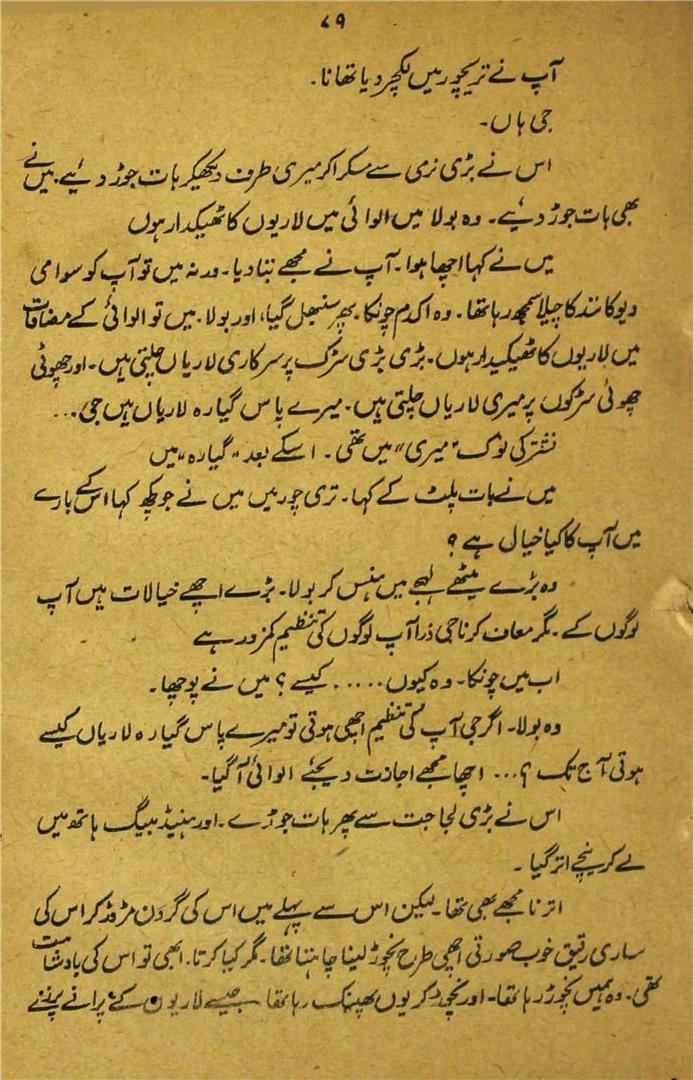 ۷۹
آپ نے تریچور میں لکچر دیا تھا نا۔
جی ہاں۔
اس نے بڑی نرمی سے مسکرا کر میری طرف دیکھکر ہات جوڑ دئیے۔ میں نے
بھی ہات جوڑ دئیے۔ وہ بولا میں الوائی میں لاریوں کا ٹھیکدار ہوں
میں نے کہا اچھا ہوا۔ آپ نے مجھے بتا دیا۔ ورنہ میں تو آپ کو سوامی
دیوکانند کا چیلا سمجھ رہا تھا۔ وہ اکدم چونکا۔ پھر سنبھل گیا، اور بولا۔ میں تو الوائی کے مضافات
میں لاریوں کا ٹھیکیدار ہوں۔ بڑی بڑی سڑک پر سرکاری لاریاں چلتی ہیں۔ اور چھوٹی
چھوٹی سڑکوں پر میری لاریاں چلتی ہیں۔ میرے پاس گیارہ لاریاں ہیں جی...
نشتر کی نوک "میری" میں تھی۔ اسکے بعد "گیارہ" میں
میں نے بات پلٹ کے کہا۔ تری چور میں میں نے جو کچھ کہا اس کے بارے
میں آپ کا کیا خیال ہے ؟
وہ بڑے میٹھے لہجے میں ہنس کر بولا۔ بڑے اچھے خیالات ہیں آپ
لوگوں کے۔ مگر معاف کرنا جی ذرا آپ لوگوں کی تنظیم کمزور ہے
اب میں چونکا۔ وہ کیوں..... کیسے ؟ میں نے پوچھا۔
وہ بولا۔ اگر جی آپ کی تنظیم اچھی ہوتی تو میرے پاس گیارہ لاریاں کیسے
ہوتی آج تک ؟... اچھا مجھے اجازت دیجئے الوائی آ گیا۔
اس نے بڑی لجاجت سے پھر ہات جوڑے۔ اور ہینڈ بیگ ہاتھ میں
لے کر نیچے اتر گیا ۔
اترنا مجھے بھی تھا۔ لیکن اس سے پہلے میں اس کی گردن مڑوڑ کر اس کی
ساری رقیق خوب صورتی اچھی طرح نچوڑ لینا چاہتا تھا۔ مگر کیا کرتا۔ ابھی تو اس کی بادشاہت
تھی۔ وہ ہمیں نچوڑ رہا تھا۔ اور نچوڑ کر یوں پھینک رہا تھا جیسے لاریوں کے پرانے پرزے